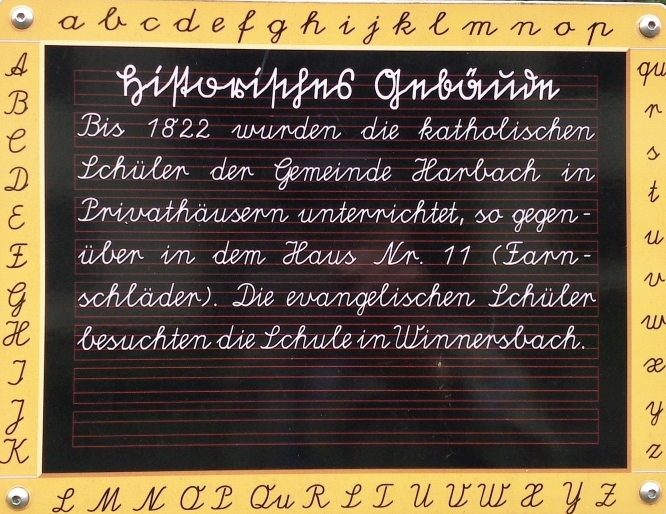 a b c d e f g h i j k l m n o p
Historisches Gebäude
Bis 1822 wurden die katholischen
Schüler der Gemeinde Harbach in
Privathäusern unterrichtet, so gegen-
über in dem Haus Nr. 11 (Farn-
schläder). Die evangelischen Schüler
besuchten die Schule in Winnersbach.
A
B
C
D
E
F
G
H
I
J
K
qu
r
s
t
u
v
w
x
y
z
L M N O P Qu R S T U V W X Y Z